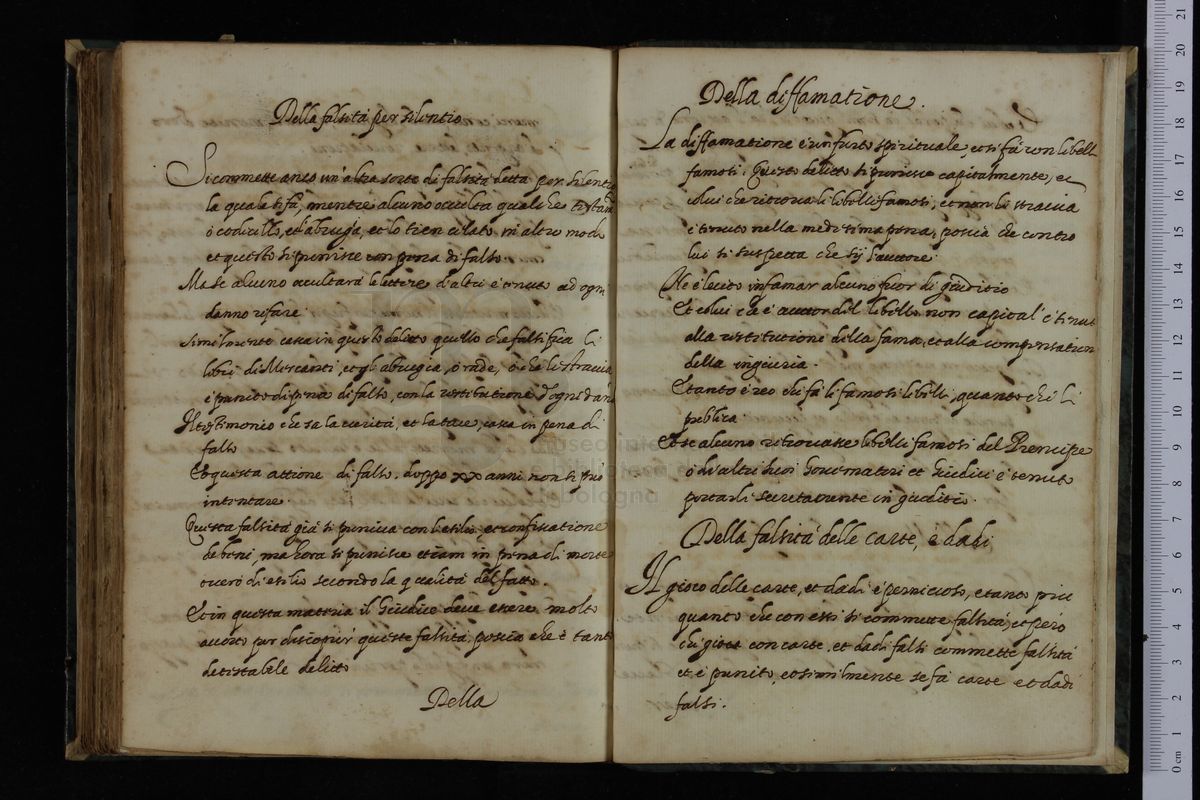 Della falsità per silentio
Si commette anco un'altra sorte di falsità detta per silentio
la quale si fà, mentre alcuno occulta qualche testam
ò codicillo, et abrugia, et lo tien celato, in altro modo
et questo si punisce con pena di falso.
Ma se alcuno occultarà le lettere d'altri è tenuto ad ogni
danno rifare.
Similmente casca in questo delitto quello che falsifica li
libri di Mercanti, et gl'abrugia, ò rade, ò che li stracia
è punito di pena di falso, con la restitutione d'ogni dan
Il testimonio che sa la verità, et la tace, casca in pena di
falso
Et questa attione di falso, doppo XX anni non si può
intentare.
Questa falsità già si puniva con l'esilio, et confiscatione
de beni ma hora si punisce etiam in pena di morte
overò di esilio secondo la qualità del fatto.
Et in questa materia il Giudice deve essere molto
acorto per discoprir queste falsità, poscia che è tanto
detestabile delitto
Della
Della diffamatione.
La diffamatione è un furto spirituale, et si fà con libelli
famosi. Questo delitto si punisce capitalmente, et
colui che ritrova li libelli famosi, et non li straccia
è tenuto nella medesima pena, poscia che contro
lui si suspetta che sij l'auttore.
Ne è lecito infamar alcuno fuor di giuditio
Et colui che è auttor del libello non capital' è tenuto
alla restitutione della fama, et alla compensation
della ingiuria.
Et tanto è reo chi fà li famosi libelli, quanto chi li
publica.
Et se alcuno ritrovasse libelli famosi del Prencipe
ò di altri suoi Governatori et Giudici è tenuto
portarli secretamente in giuditio.
Della falsità delle carte, è dadi
Il gioco delle carte, et dadi è pernicioso, et tanto più
quanto che con essi si commette falsità, et però
chi gioca con carte, et dadi falsi commette falsità
et è punito, et similmente se fà carte et dadi
falsi.